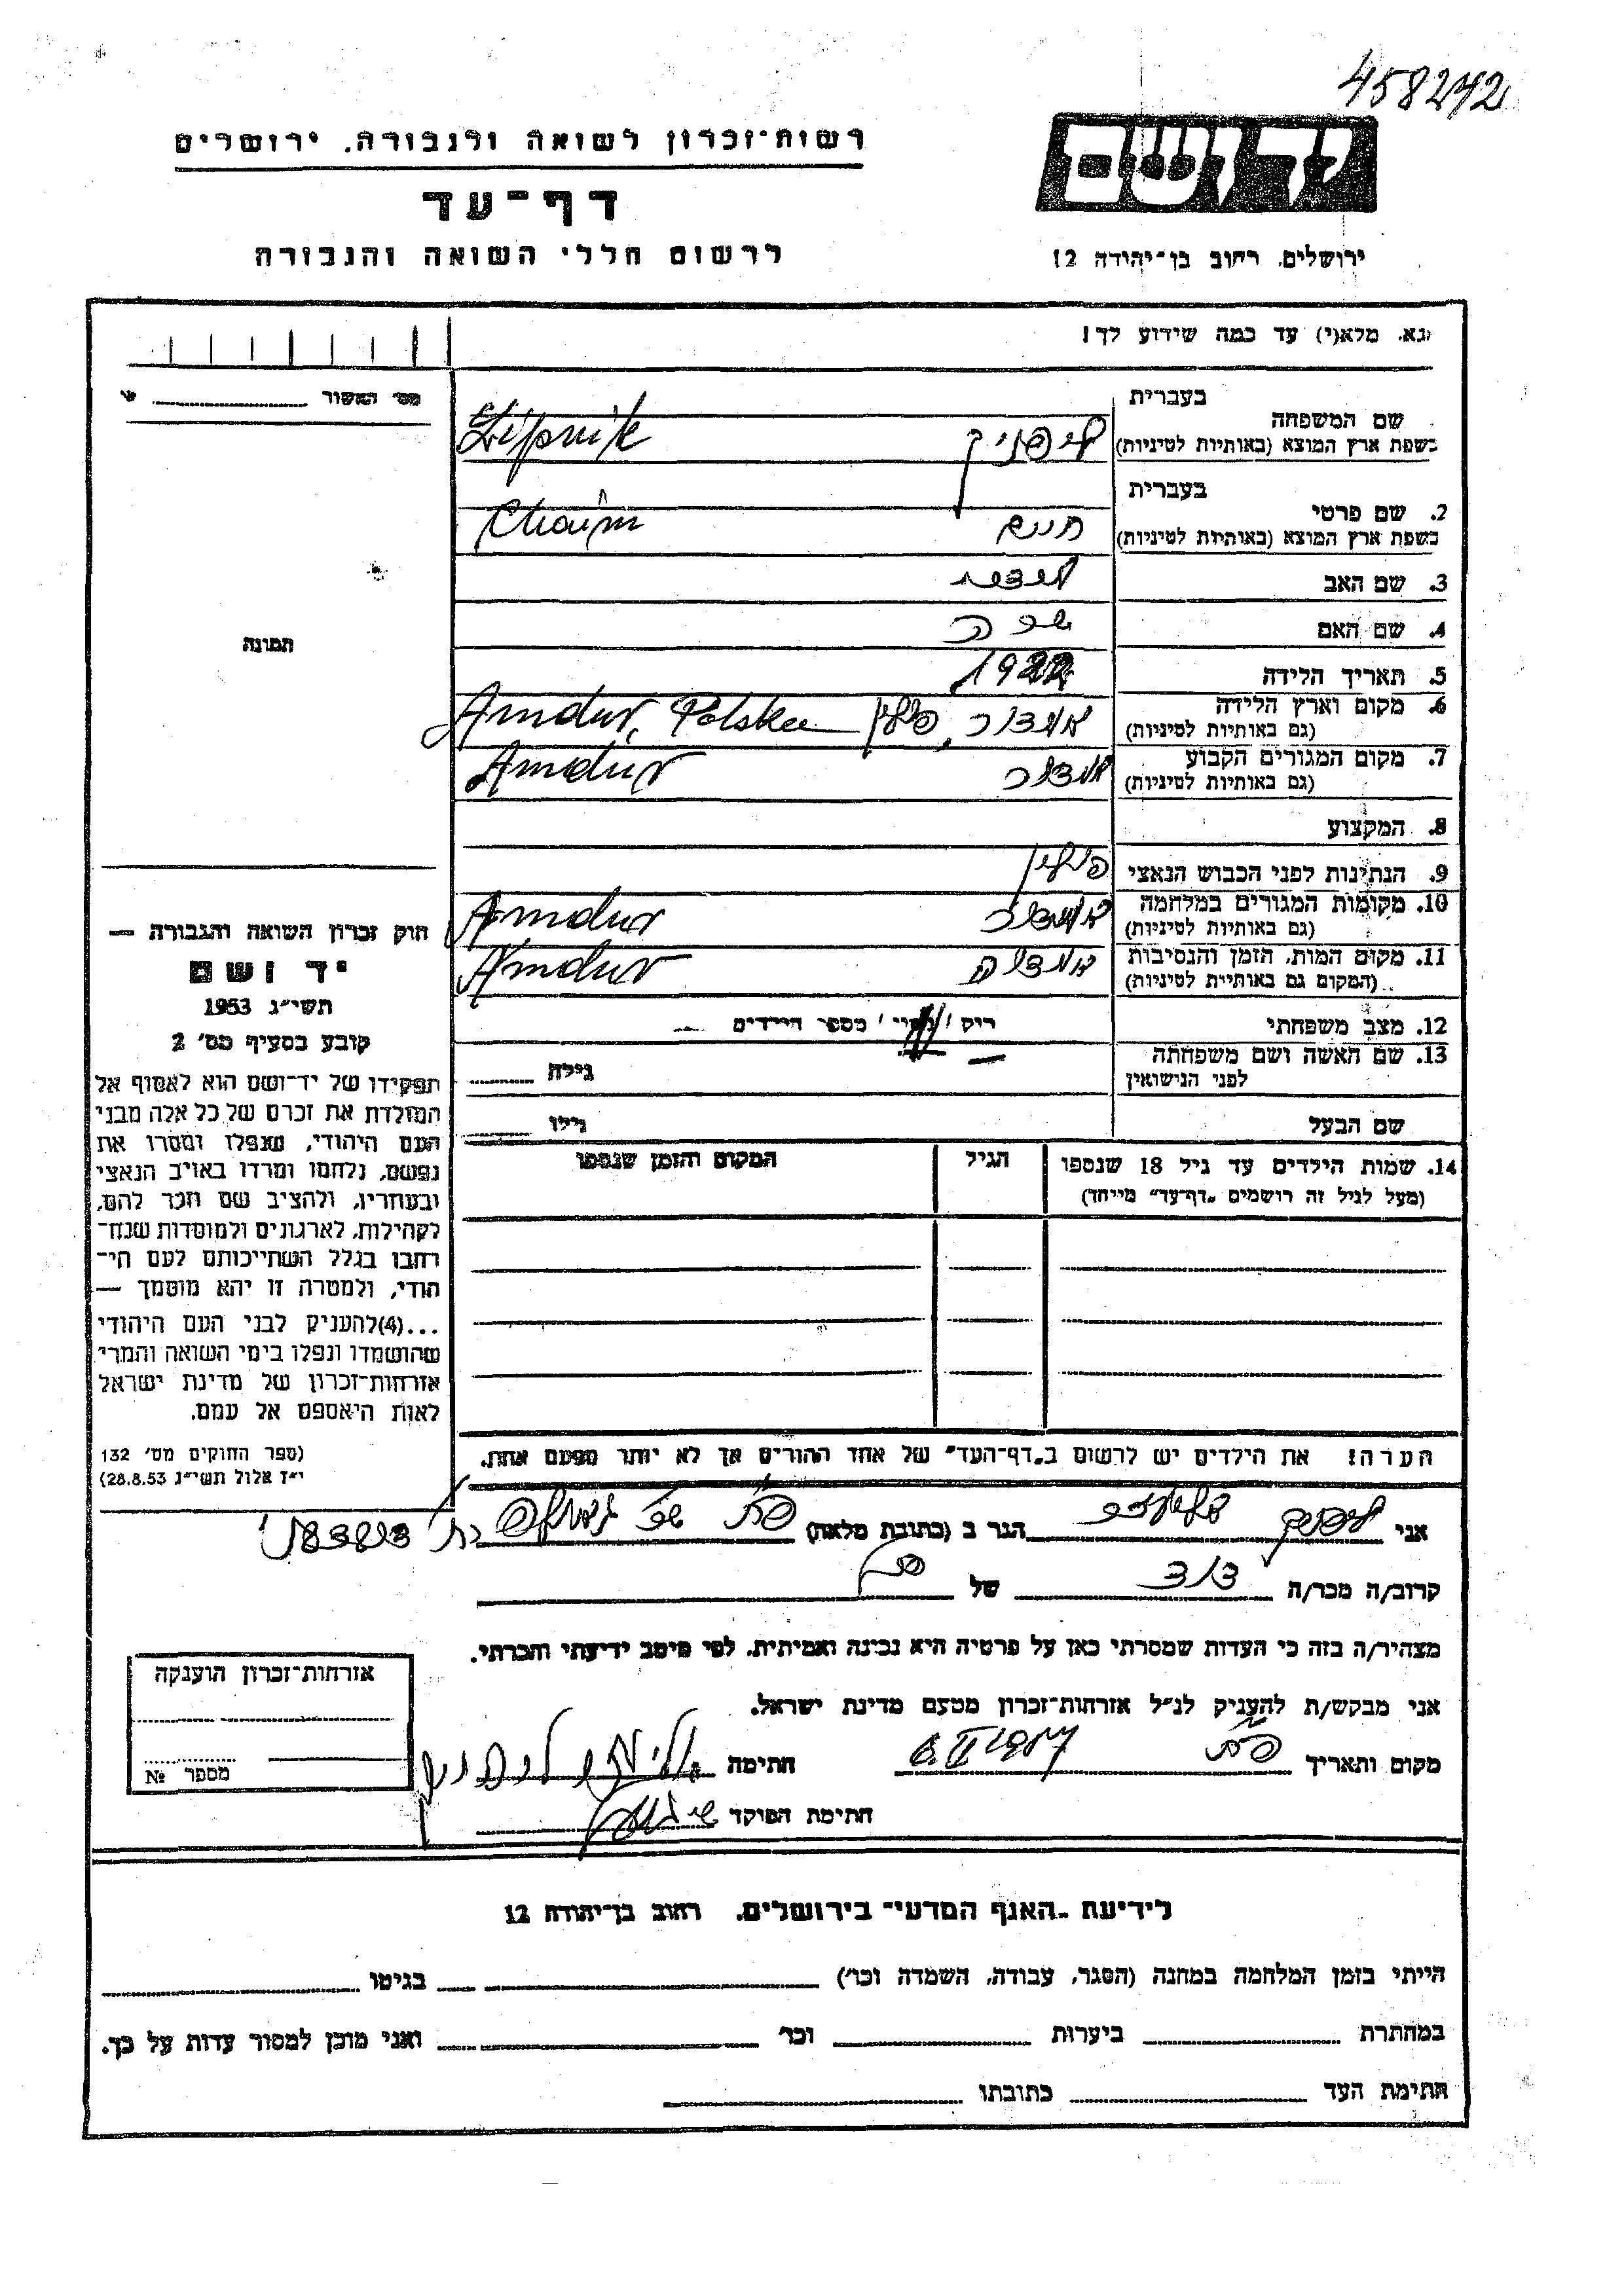 458242
רשות-זכרון לשואה ולגבורה. ירושלים
יד ושם
דף-עד
לרשום חללי השואה והגבורה
ירושלים. רחוב בן-יהודה 12
נא. מלא(י) עד כמה שידוע לך!
מס' האשור
בעברית
שם המשפחה
בשפת ארץ המוצא (באותיות לטיניות)
ליפניק
Lipnik
בעברית
2. שם פרטי
בשפת ארץ המוצא (באותיות לטיניות)
חיים
Chaim
3. שם האב
4. שם האם
5. תאריך הלידה
6. מקום וארץ הלידה
(גם באותיות לטיניות)
אמדור, פולין Amdur, Polska
7. מקום המגורים הקבוע
(גם באותיות לטיניות)
אמדור Amdur
8. המקצוע
9. הנתינות לפני הכבוש הנאצי פולין
10. מקומות המגורים במלחמה
(גם באותיות לטיניות)
אמדור Amdur
11. מקום המות, הזמן והנסיבות
(המקום גם באותיות לטיניות)
Amdur
12. מצב משפחתי
מספר הילדים
13. שם האשה ושם משפחתה
לפני הנישואין
גילה
שם הבעל
גילו
14. שמות הילדים עד גיל 18 שנספו
(מעל לגיל זה רושמים "דף-עד" מייחד)
הגיל
המקום והזמן שנספו
הערה! את הילדים יש לרשום ב"דף-העד" של אחד ההורים אך לא יותר מפעם אחת.
תמונה
חוק זכרון השואה והגבורה —
יד ושם
תשי"ג 1953
קובע בסעיף מס' 2
תפקידו של יד-ושם הוא לאסוף אל
המולדת את זכרם של כל אלה מבני
העם היהודי, שנפלו ומסרו את
נפשם, נלחמו ומרדו באויב הנאצי
ובעוזריו, ולהציב שם וזכר להם,
לקהילות, לארגונים ולמוסדות שנח-
רבו בגלל השתייכותם לעם הי-
הודי, ולמטרה זו יהא מוסמך —
...(4)להעניק לבני העם היהודי
שהושמדו ונפלו בימי השואה והמרי
אזרחות-זכרון של מדינת ישראל
לאות היאספם אל עמם.
(ספר החוקים מס' 132
י"ז אלול תשי"ג 28.8.53)
אני ליפניק הגר ב (כתובת מלאה)
קרוב/ה מכר/ה דוד של
מצהיר/ה בזה כי העדות שמסרתי כאן על פרטיה היא נכונה ואמיתית, לפי מיטב ידיעתי והכרתי.
אני מבקש/ת להעניק לנ"ל אזרחות-זכרון מטעם מדינת ישראל.
מקום ותאריך
חתימה
חתימת הפוקד
אזרחות-זכרון הוענקה
מספר №
לידיעת "האגף המדעי" בירושלים. רחוב בן-יהודה 12
הייתי בזמן המלחמה במחנה (הסגר, עבודה, השמדה וכו') בגיטו
במחתרת ביערות וכו' ואני מוכן למסור עדות על כך.
חתימת העד כתובתו